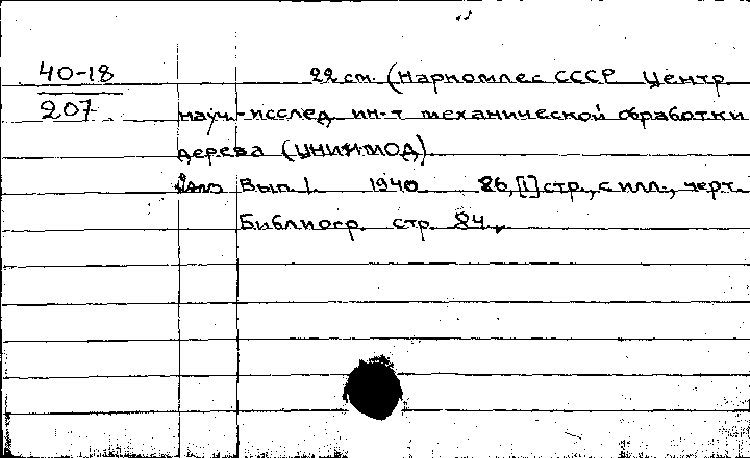 40-18
207
22 см. (Наркомлес СССР Центр.
науч.-исслед. ин-т механической обработки
дерева (ЦНИИМОД).
Вып. 1. 1940 86, [1] стр., с илл., черт.
Библиогр. стр. 84.